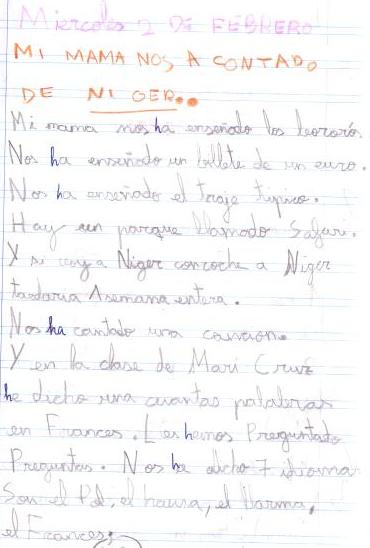 Miercoles 2 DE FEBRERO
MI MAMA NOS A CONTADO
DE NIGER..
Mi mama nos ha enseñado los
Nos ha enseñado un billete de un euro.
Nos ha enseñado el traje tipico.
Hay un parque llamado Safari.
Y si voy a Niger con coche a Niger
tardaria 1 semana entera.
Nos ha cantado una cancion.
Y en la clase de Mari Cruz
he dicho una cuantas palabras
en Frances. Les hemos Preguntado
Preguntas. Nos ha dicho 7 idioma
Son el Pel, el hausa, el
el Frances,